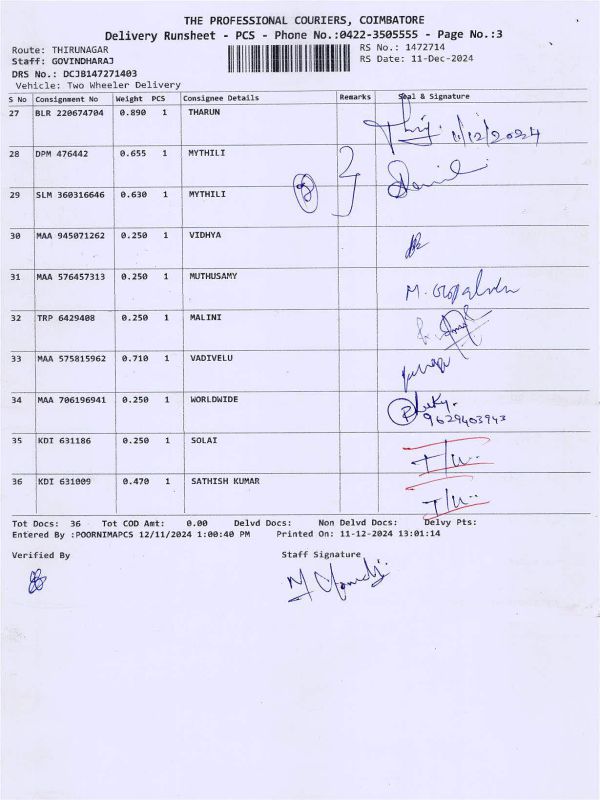 THE PROFESSIONAL COURIERS, COIMBATORE
Delivery Runsheet - PCS - Phone No.:0422-3505555 - Page No.:3
Route: THIRUNAGAR RS No.: 1472714
Staff: GOVINDHARAJ RS Date: 11-Dec-2024
DRS No.: DCJB147271403
Vehicle: Two Wheeler Delivery
S No Consignment No Weight PCS Consignee Details Remarks Seal & Signature
27 BLR 220674704 0.890 1 THARUN
11/12/2024
28 DPM 476442 0.655 1 MYTHILI
29 SLM 360316646 0.630 1 MYTHILI
30 MAA 945071262 0.250 1 VIDHYA
31 MAA 576457313 0.250 1 MUTHUSAMY
32 TRP 6429408 0.250 1 MALINI
33 MAA 575815962 0.710 1 VADIVELU
34 MAA 706196941 0.250 1 WORLDWIDE
9629403943
35 KDI 631186 0.250 1 SOLAI
36 KDI 631009 0.470 1 SATHISH KUMAR
Tot Docs: 36 Tot COD Amt: 0.00 Delvd Docs: Non Delvd Docs: Delvy Pts:
Entered By :POORNIMAPCS 12/11/2024 1:00:40 PM Printed On: 11-12-2024 13:01:14
Verified By Staff Signature